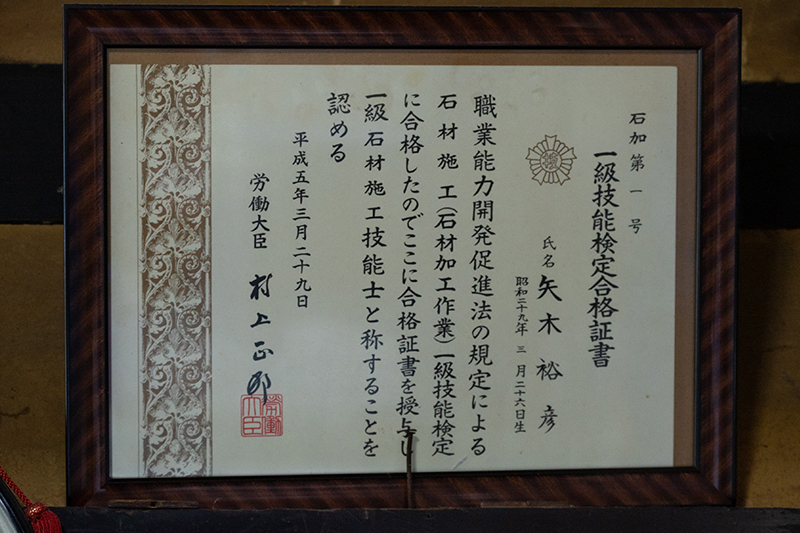 石加第一号
一級技能検定合格証書
氏名 矢木裕彦
昭和二十九年 三月二十六日生
職業能力開発促進法の規定による
石材施工(石材加工作業)一級技能検定
に合格したのでここに合格証書を授与し
一級石材施工技能士と称することを
認める
平成五年三月二十九日
労働大臣 村上正邦
労働大臣